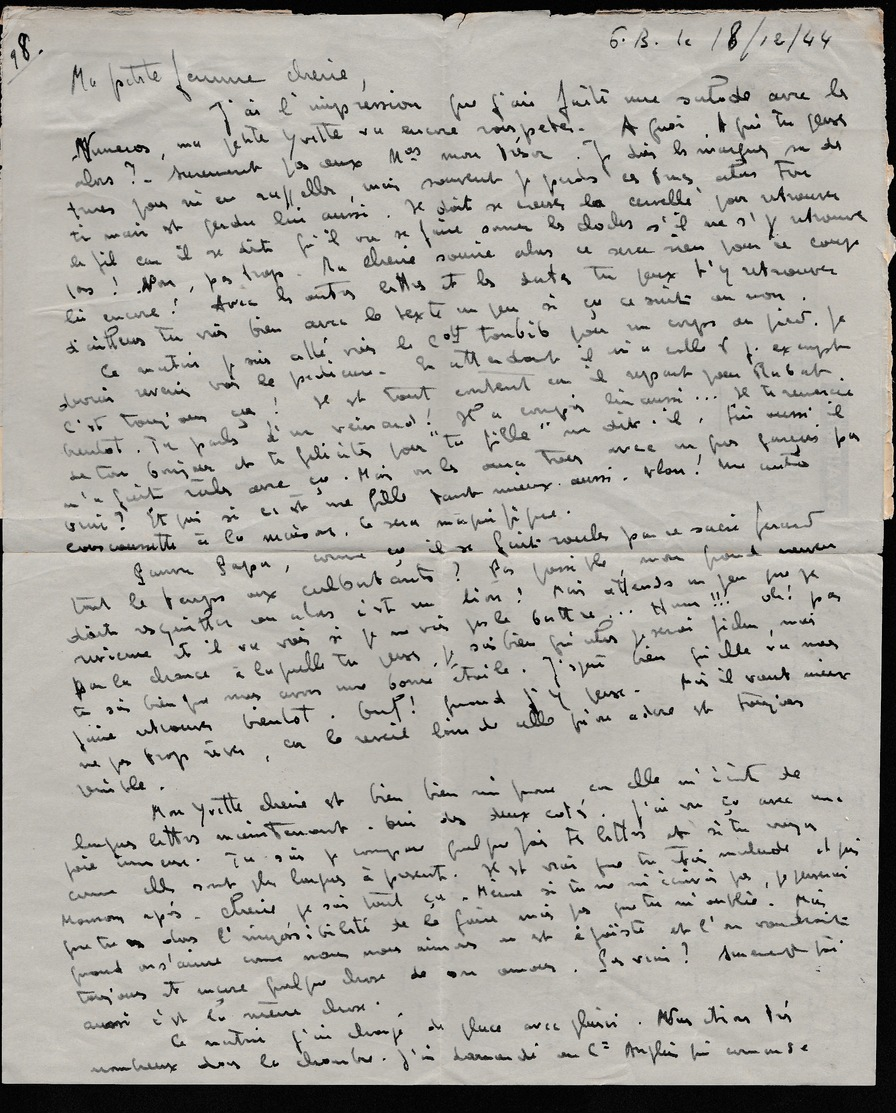 98.
G.B. le 18/12/44
Ma petite femme cherie,
J'ai l'impression que j'ai faite une salade avec les
Numeros, ma petite Yvette va encore rouspeter. A quoi, A qui tu penses
alors? - Surement pas aux Nos mon Trésor. Je dois les marquer sur des
trucs pour m'en rappeller, mais souvent je perds ces trucs alors Fini
ti mari est perdu lui aussi. Je doit se creuser la cervelle pour retrouver
le fil car il se dit qu'il va se faire sonner les cloches s'il ne s'y retrouve
pas! Non, pas trop. Ma cherie sourie alors ce sera rien pour ce coup
lui encore! Avec les autres lettres et les dates tu peux t'y retrouver
d'ailleurs tu vois bien avec le texte un peu si ça ce suit ou non.
Ce matin je suis allé voir le toubib pour un corps au pied. Je
devrai revenir voir le pedicure. En attendant il m'a collé exempt
C'est toujours ça! Il est tout content car il repart pour Rabat
bientot. Tu parles d'un veinard! Il a compris lui aussi... Il te remercie
de ton bonjour et te félicite pour "ta fille" me dit-il, lui aussi il
m'a fait avec ça. Mais on les aura tous avec un gros garçon pas
vrai? Et puis si c'est une fille tant mieux aussi. Vlan! Une autre
couscoussette à la maison. Ce sera magnifique.
Pauvre Papa, comme ça il se fait rouler par ce sacré
tout le temps aux culbutants? Pas possible, mon grand
doit resquiller ou alors c'est un lion! Mais attends un peu que je
revienne et il va voir si je ne vais pas le battre... Hum!!! oh! pas
par la chance à laquelle tu penses, je sais bien qu'alors je serai fichu, mais
tu sais bien que nous avons une bonne étoile. J'espère bien qu'elle va nous
faire retrouver bientot. Ouf! quand j'y pense. Mais il vaut mieux
ne pas trop rêver, car le reveil loin de celle qu'on adore est toujours
penible.
Mon Yvette cherie est bien bien mignonne car elle m'écrit de
longues lettres maintenant. Oui des deux cotés. J'ai vu ça avec une
joie immense. Tu sais je compare quelquefois tes lettres et si tu voyais
comme elles sont plus longues à present. Il est vrai que tu étais malade et puis
Maman après. Cherie je sais tout ça. Même si tu ne m'écrivais pas, je penserai
que tu es dans l'impossibilité de le faire mais pas que tu m'oublie. Mais
quand on s'aime comme nous nous aimons on est égoïste et l'on voudrait
toujours et encore quelque chose de son amour. Pas vrai? Surement toi
aussi c'est la même chose.
Ce matin j'ai changé de place avec plaisir. Nous étions très
nombreux dans la chambre. J'ai demandé au Cne Anglais qui commande